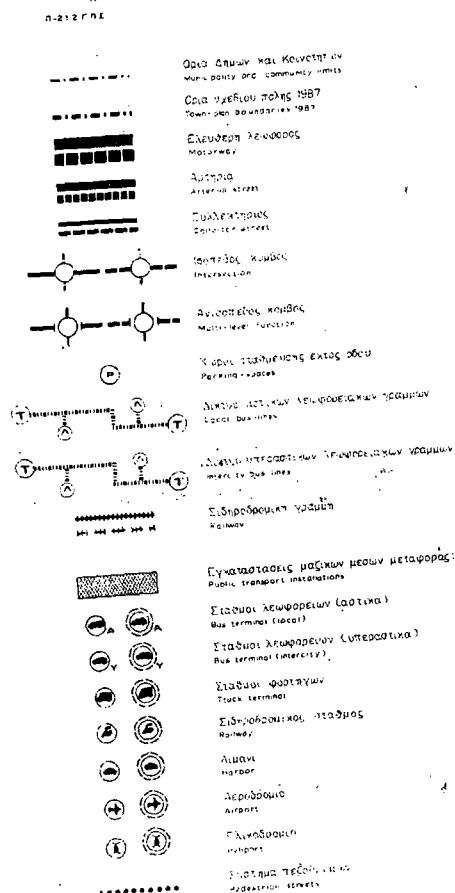 Π-212 ΓΠΣ
Ορια Δημων και Κοινοτητων
Municipality and community limits
Ορια σχεδιου πολης 1987
Town-plan Boundaries 1987
Ελευθερη λεωφορος
Motorway
Αρτηρια
Arterial street
Συλλεκτηριος
Collector street
Ισοπεδος κομβος
Intersection
Ανισοπεδος κομβος
Multi-level function
Χωροι σταθμευσης εκτος οδου
Parking-spaces
P
Δικτυο αστικων λεωφορειακων γραμμων
Local bus lines
T T
Δικτυο υπεραστικων λεωφορειακων γραμμων
Intercity bus lines
T T
Σιδηροδρομικη γραμμη
Railway
Εγκαταστασεις μαζικων μεσων μεταφορας:
Public transport installations
Σταθμοι λεωφορειων (αστικα)
Bus terminal (local)
A A
Σταθμοι λεωφορειων (υπεραστικα)
Bus terminal (intercity)
Y Y
Σταθμοι φορτηγων
Truck terminal
Σιδηροδρομικος σταθμος
Railway
Λιμανι
Harbor
Αεροδρομιο
Airport
Ελικοδρομιο
Heliport
Συστημα
Pedestrian streets